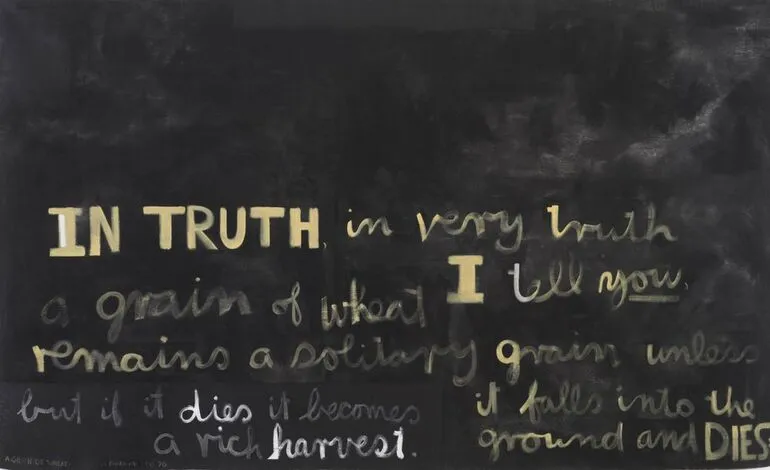 IN TRUTH, in very truth
I tell you,
a grain of wheat
remains a solitary grain unless
it falls into the
ground and DIES
but if it dies it becomes
a rich harvest.
A GRAIN OF WHEAT